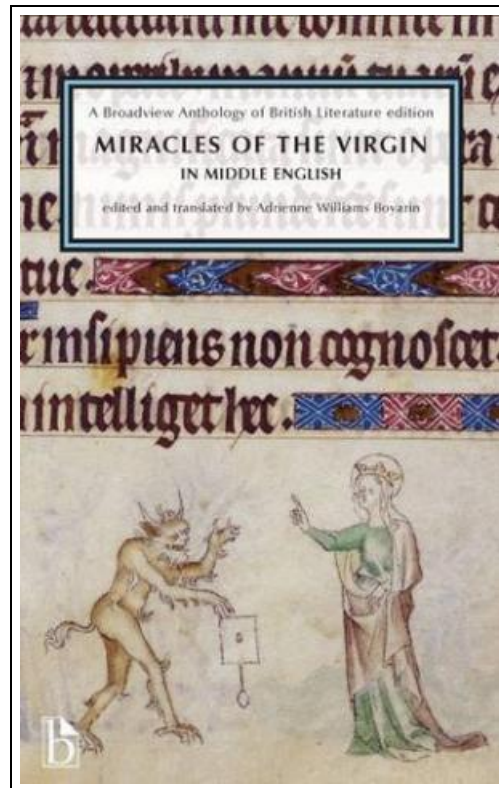 A Broadview Anthology of British Literature edition
MIRACLES OF THE VIRGIN
IN MIDDLE ENGLISH
edited and translated by Adrienne Williams Boyarin
ne.
tue.
r insipiens non cognoscet
intelliget hec.
b